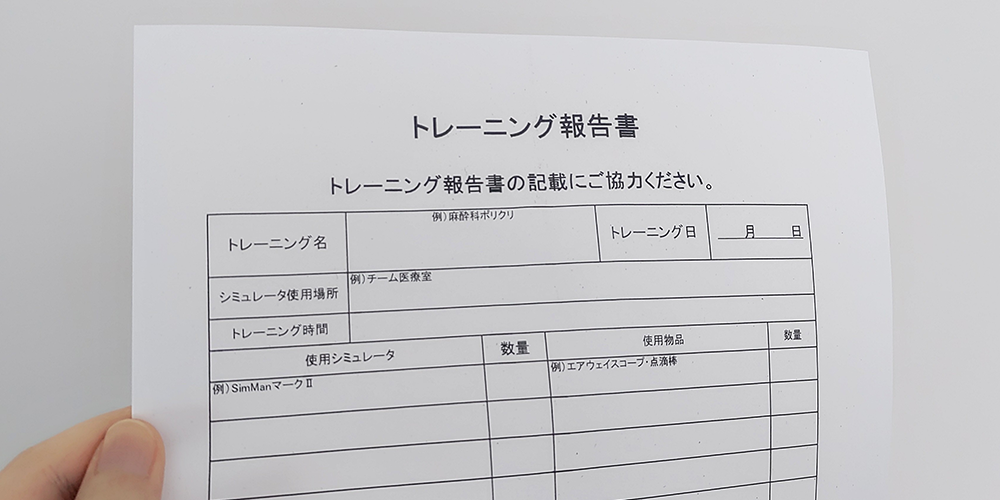 トレーニング報告書
トレーニング報告書の記載にご協力ください。
トレーニング名
例)麻酔科ポリクリ
トレーニング日
月 日
シミュレータ使用場所
例)チーム医療室
トレーニング時間
使用シミュレータ
数量
使用物品
数量
例)SimManマークⅡ
例)エアウェイスコープ・点滴棒